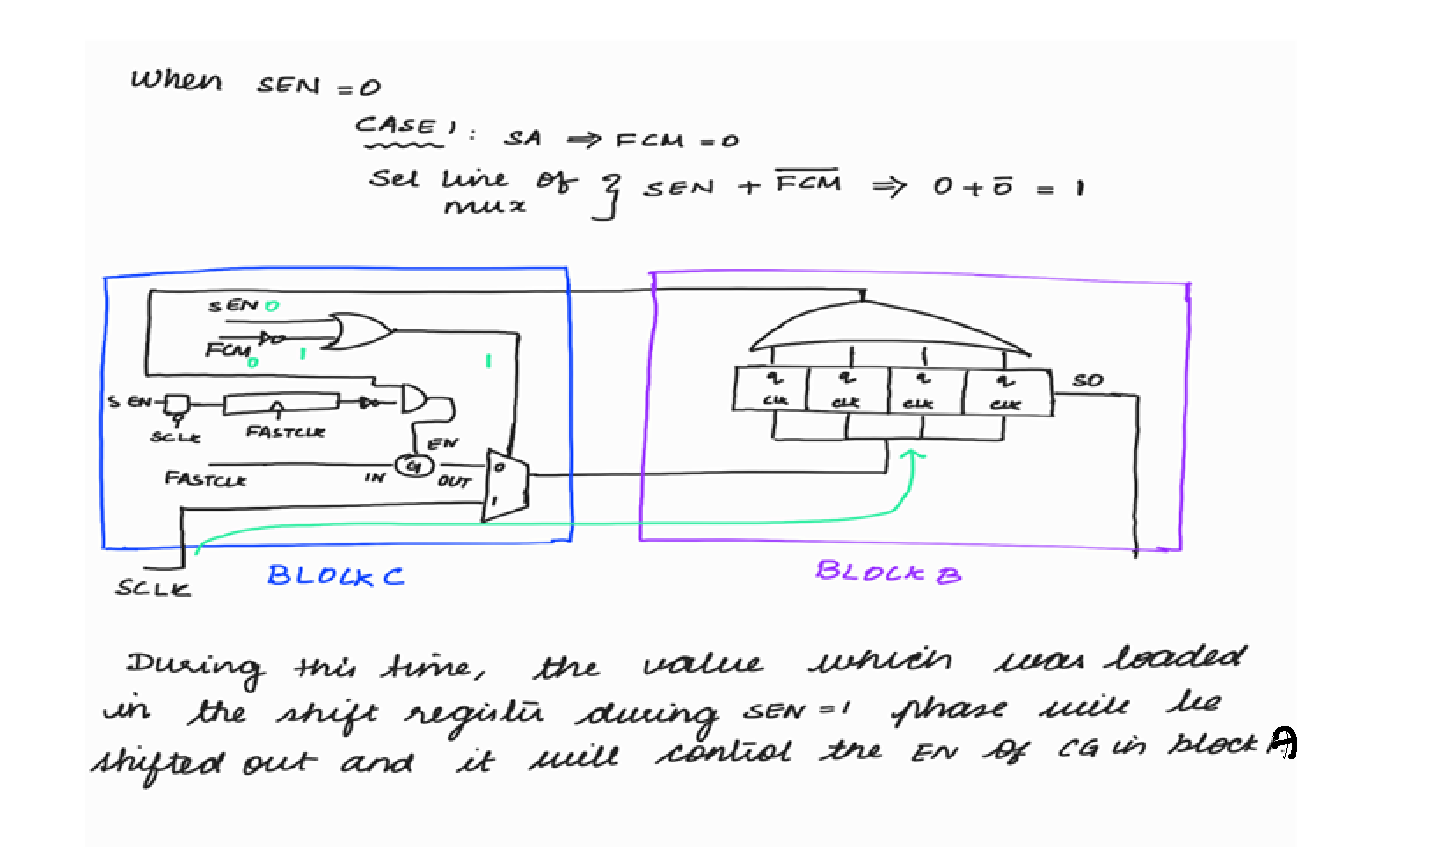 When SEN = 0
CASE 1 : SA ⇒ FCM = 0
Sel line of } SEN + F̅C̅M̅ ⇒ 0 + 0̅ = 1
mux
SEN 0
FCM 0 1
1
SEN
SCLK
FASTCLK
EN
FASTCLK
IN
CG
OUT
0
1
SCLK
BLOCK C
q q q q
CLK CLK CLK CLK
SO
BLOCK B
During this time, the value which was loaded
in the shift register during SEN = 1 phase will be
shifted out and it will control the EN of CG in block A